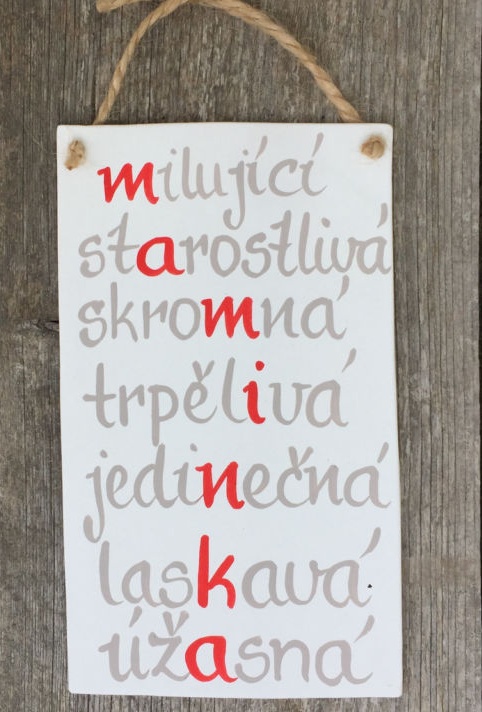 milující
starostlivá
skromná
trpělivá
jedinečná
laskavá
úžasná